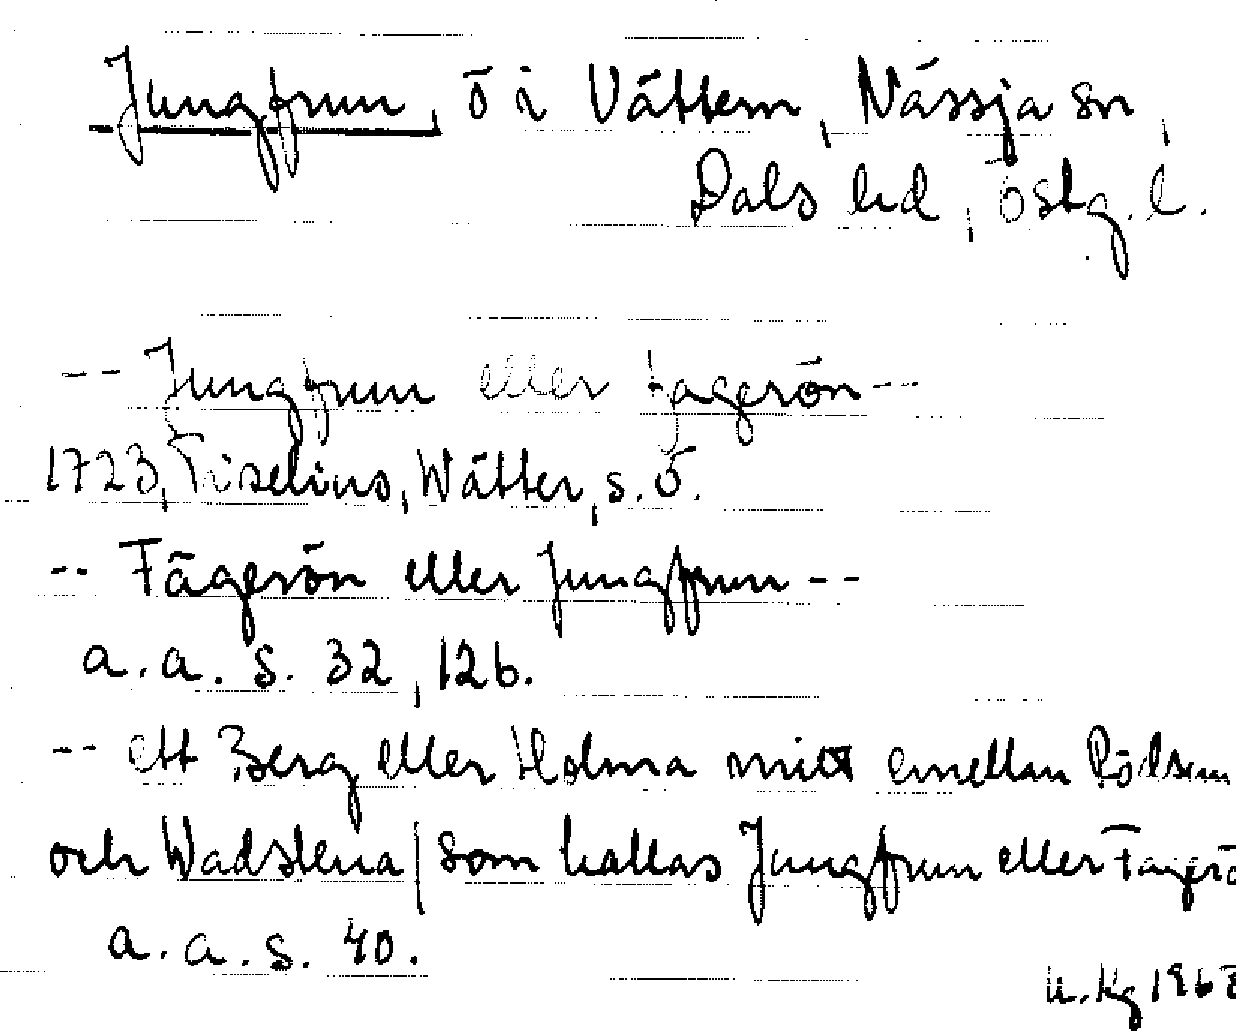 Jungfrun, ö i Vättern, Nässja sn,
Dals hd, Östg. l.
-- Jungfrun eller Fagerön --
1723, Tiselius, Wätter, s. 5.
-- Fägerön eller Jungfrun --
a.a. s. 32, 126.
-- ett Berg eller Holma mitt emellan
och Wadstena / som kallas Jungfrun eller Fagerö
a.a. s. 40.
U. Kg 1968